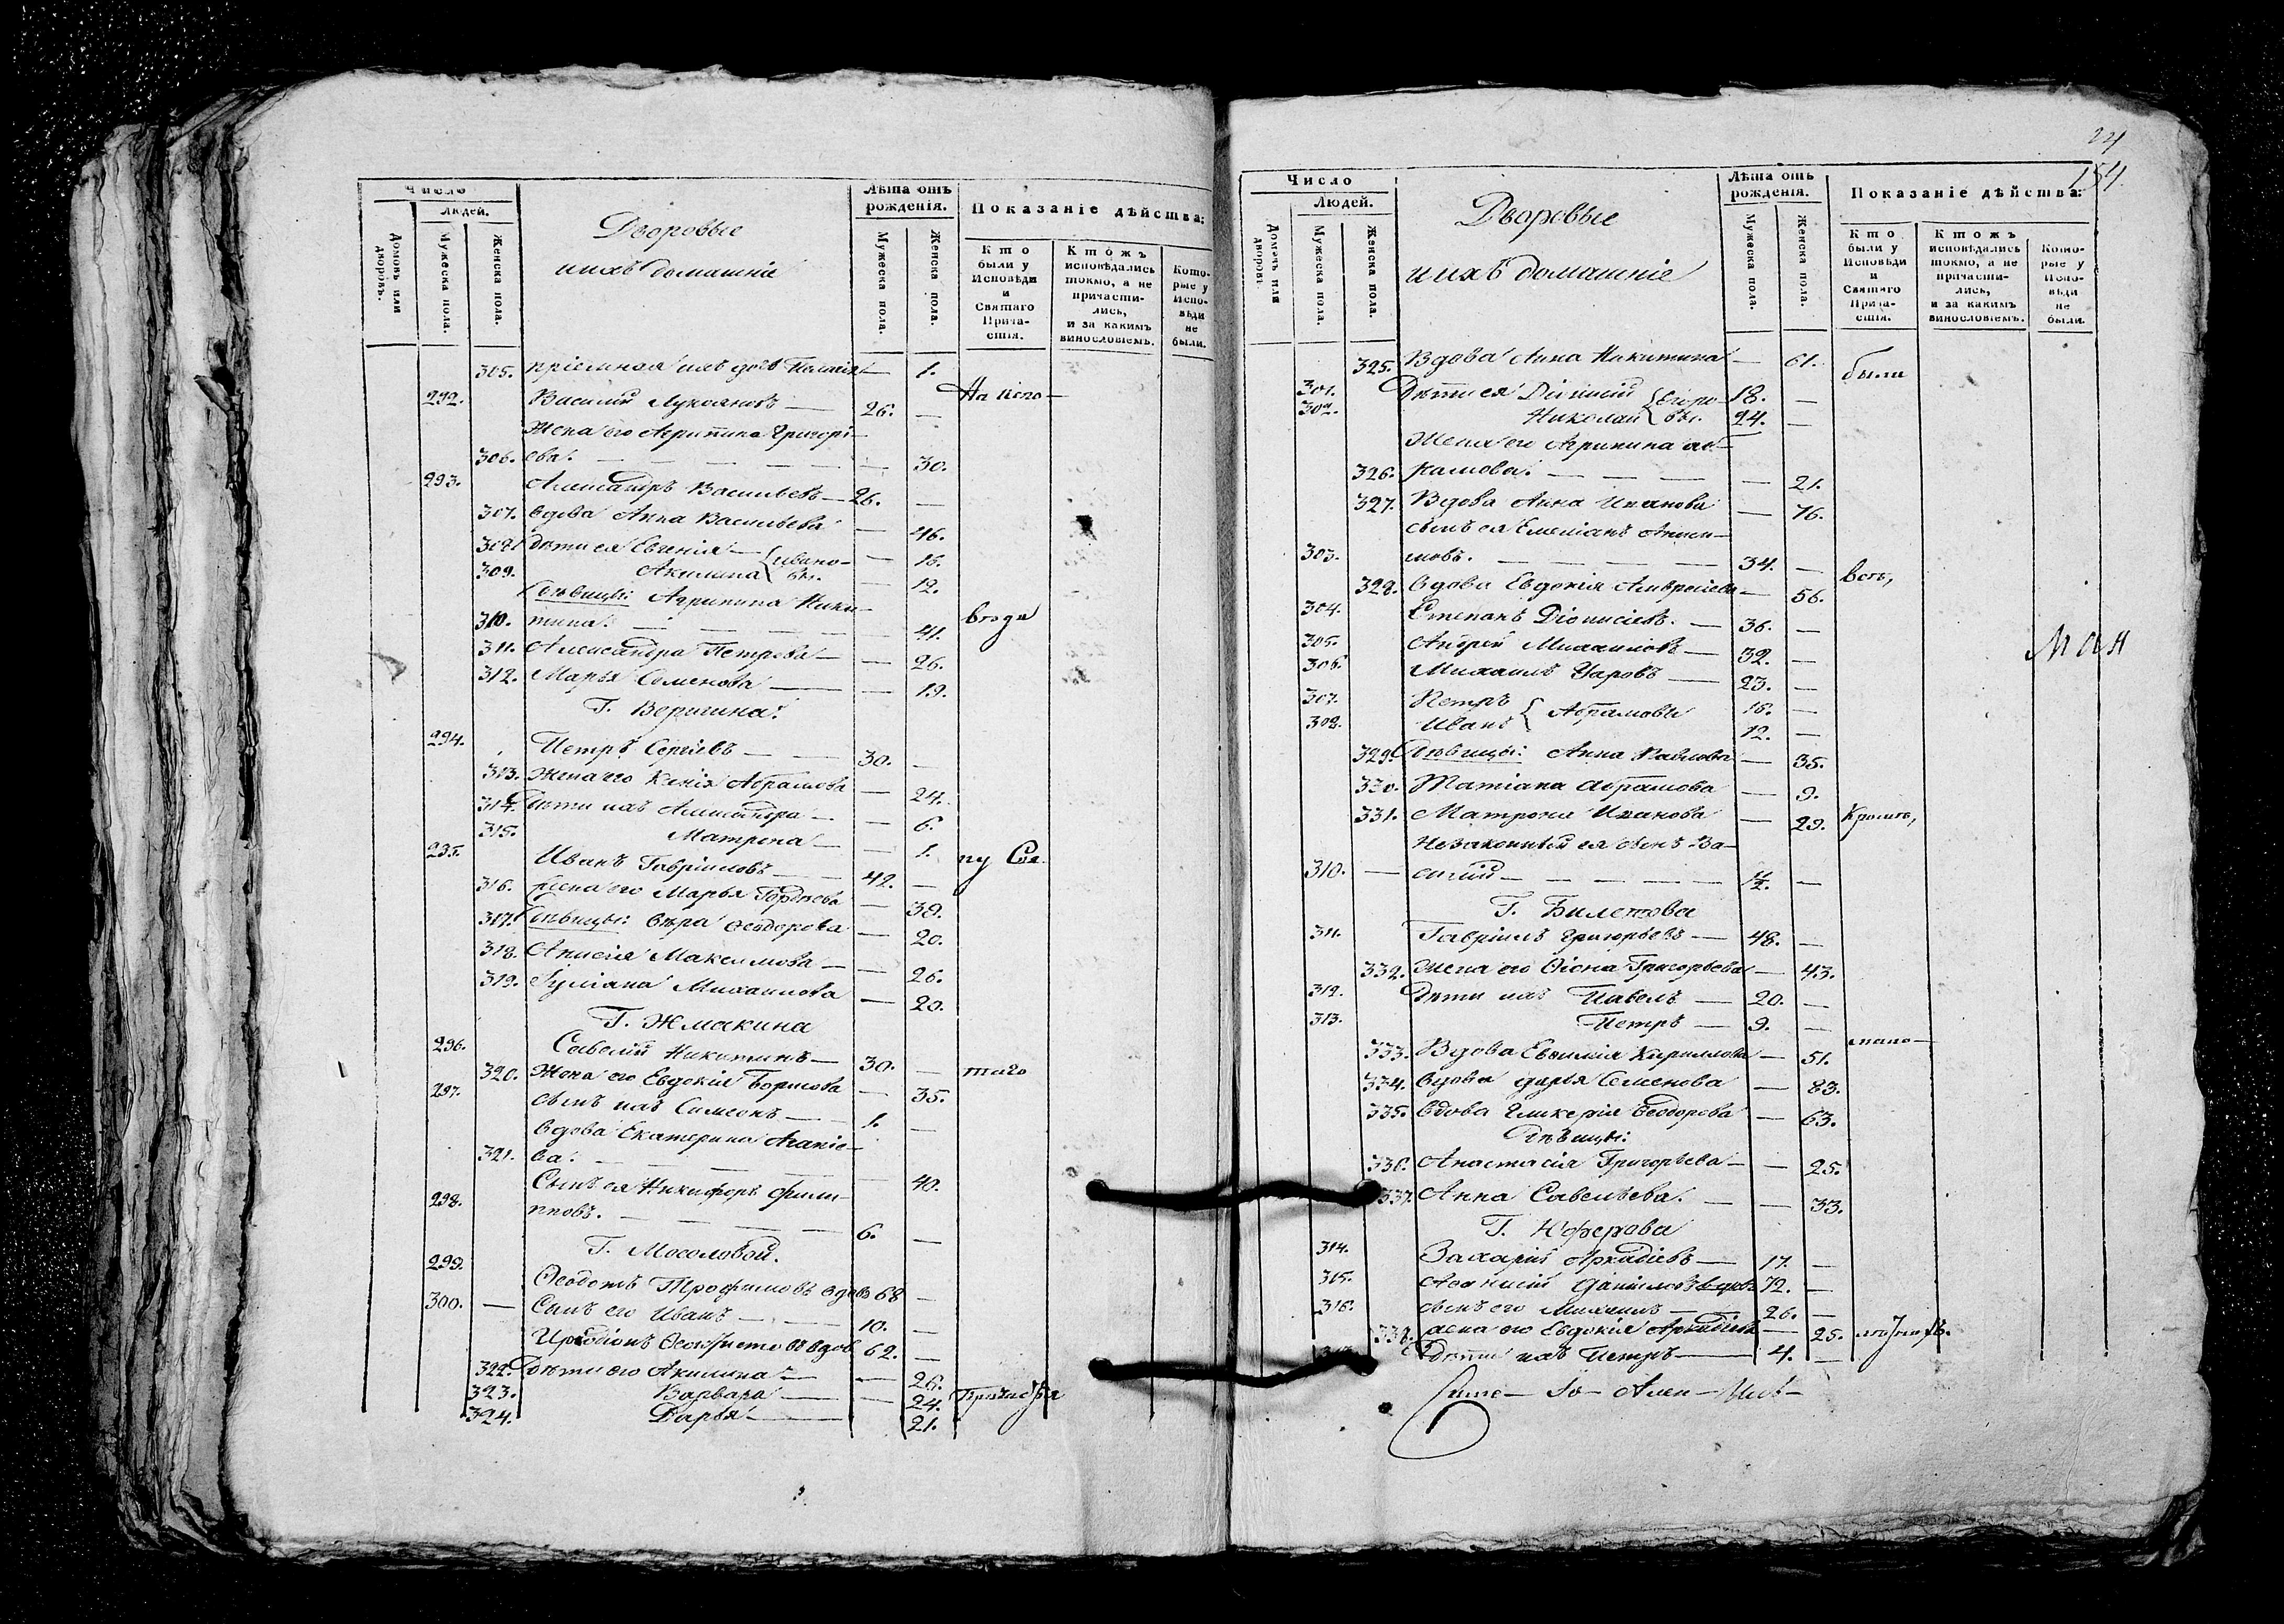 Число
Людей.
Домовъ или дворовъ.
Мужеска пола.
Женска пола.
Дворовые
ихъ домашніе
Лѣта отъ рожденія.
Мужеска пола.
Женска пола.
Показаніе дѣйства:
Кто были у Исповѣди и Святаго Прича-стія.
Ктожъ исповѣдались токмо, а не причасти-лись, и за какимъ винословіемъ.
Кото-рые у Испо-вѣди не были.
305. пріемная ихъ 1.
292. Василій — 26. —
Жена его Агрипина Григорі-
306. ева. — 30.
293. Александръ Васильевъ — 26. —
307. вдова Анна Васильева — 46.
308. дѣти ея Евгенія — 16.
309. Акилина { Ивано-вы. — 12.
Дѣвицы: Агрипина Ники-
310. тина. — 41.
311. Александра Петрова — 26.
312. Марья Семенова — 19.
Г. Веригина.
294. Петръ Сергіевъ — 30. —
313. Жена его Ксенія Абрамова — 24.
314. Дѣти ихъ Александра — 6.
315. Матрона — 1.
295. Иванъ Гавріиловъ — 42. —
316. Жена его Марья Гордѣева — 39.
317. Дѣвицы: Вѣра Ѳеодорова — 20.
318. Анисія Максимова — 26.
319. Іуліана Михаилова — 20.
Г. Жмакина
296. Савелій Никитинъ — 30. —
320. Жена его Евдокія Борисова — 35.
297. сынъ ихъ Симеонъ — 1. —
вдова Екатерина
321. ва. — 40.
Сынъ ея Никифоръ Фили-
298. пповъ. — 6. —
Г. Мосоловой.
299. Ѳеодотъ Трофимовъ вдовъ 68 —
300. — Сынъ его Иванъ — 10. —
вдов. 62. —
322. Дѣти его Акилина — 26.
323. Варвара — 24.
324. Дарья — 21.
24
154.
Число
Людей.
Домовъ или дворовъ.
Мужеска пола.
Женска пола.
Дворовые
и ихъ домашніе
Лѣта отъ рожденія.
Мужеска пола.
Женска пола.
Показаніе дѣйства:
Кто были у Исповѣди и Святаго Прича-стія.
Ктожъ исповѣдались токмо, а не причасти-лись, и за какимъ винословіемъ.
Кото-рые у Испо-вѣди не были.
325. Вдова Анна Никитина — 61. были
301. Дѣти ея Діонисій 18. —
302. Николай { Егоро-вы. 24. —
Жена его Агрипина
326. — 21.
327. Вдова Анна Иванова — 76.
сынъ ея Емеліанъ
303. мовъ. — 34. —
всѣ,
328. вдова Евдокія Амвросіева — 56.
304. Стефанъ Діонисіевъ. — 36. —
305. Андрей Михаиловъ — 32. —
306. Михаилъ Уаровъ — 23. —
307. Петръ 16. —
308. Иванъ { Абрамовы 12. —
329. Дѣвицы: Анна Павлова — 35.
330. Татіана Абрамова — 9.
331. Матрона Иванова — 29. Кромѣ,
Незаконный ея сынъ Ва-
310. — силій — ½. —
Г. Билетова
311. Гавріилъ Григорьевъ — 48. —
332. Жена его Ѳіона Григорьева — 43.
312. Дѣти ихъ Павелъ — 20. —
313. Петръ — 9. —
333. Вдова Евфимія Кириллова — 51.
334. вдова Дарья Семенова — 83.
335. вдова Гликерія Ѳеодорова — 63.
Дѣвицы:
336. Анастасія Григорьева — 25.
337. Анна Савельева. — 33.
Г. Юферова
314. Захарій Аркадіевъ — 17. —
315. Даніиловъ вдовъ 72. —
316. сынъ его Михаилъ — 26. —
338. жена его Евдокія Аркадіева — 25.
Дѣти ихъ Петръ — 4. —